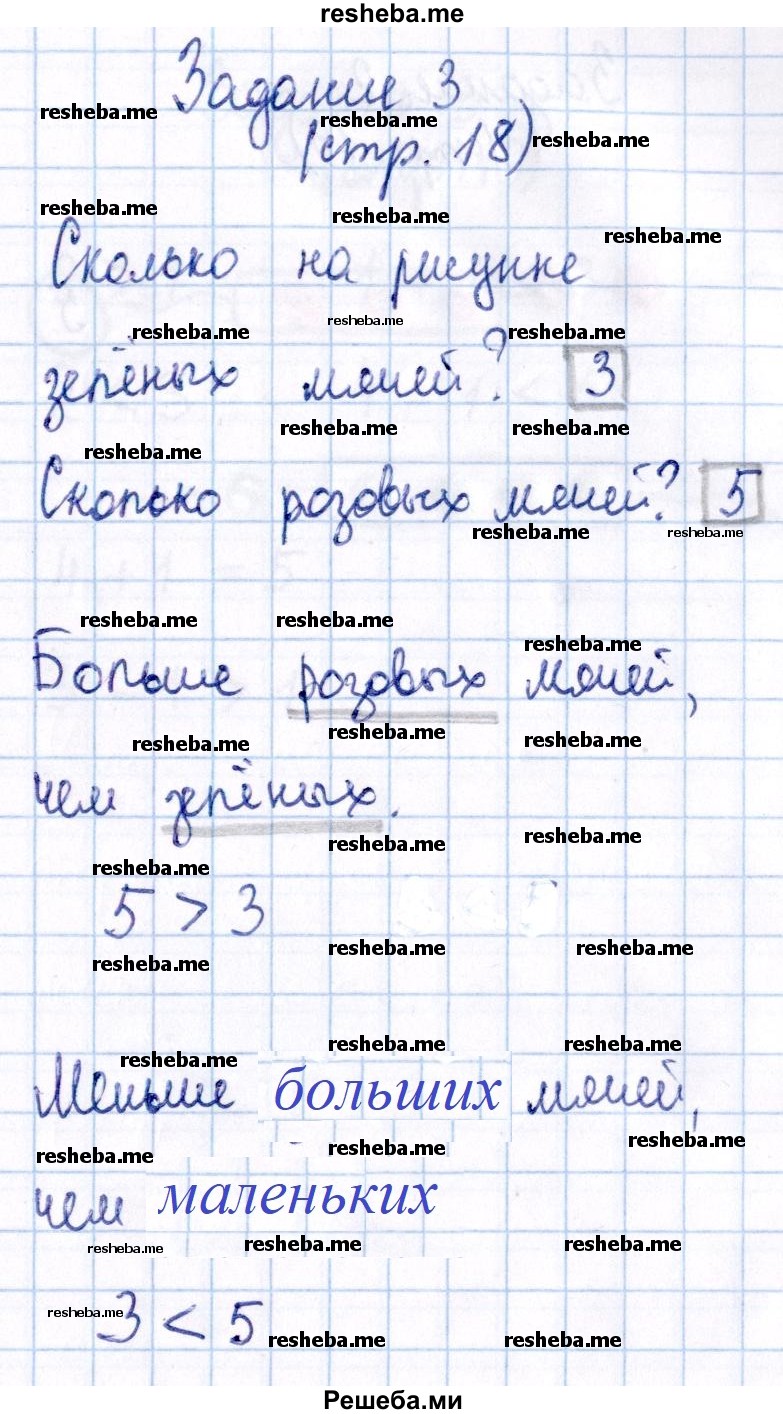 resheba.me
Задание 3
resheba.me
resheba.me
(стр. 18)
resheba.me
resheba.me
resheba.me
resheba.me
Сколько на рисунке
resheba.me
resheba.me
resheba.me
зелёных мячей? 3
resheba.me
resheba.me
resheba.me
Сколько розовых мячей? 5
resheba.me
resheba.me
resheba.me
resheba.me
resheba.me
Больше розовых мячей,
resheba.me
resheba.me
resheba.me
чем зелёных.
resheba.me
resheba.me
resheba.me
5 > 3
resheba.me
resheba.me
resheba.me
resheba.me
resheba.me
resheba.me
Меньше больших мячей,
resheba.me
resheba.me
resheba.me
чем маленьких
resheba.me
resheba.me
resheba.me
resheba.me
3 < 5
resheba.me
resheba.me
Решеба.ми